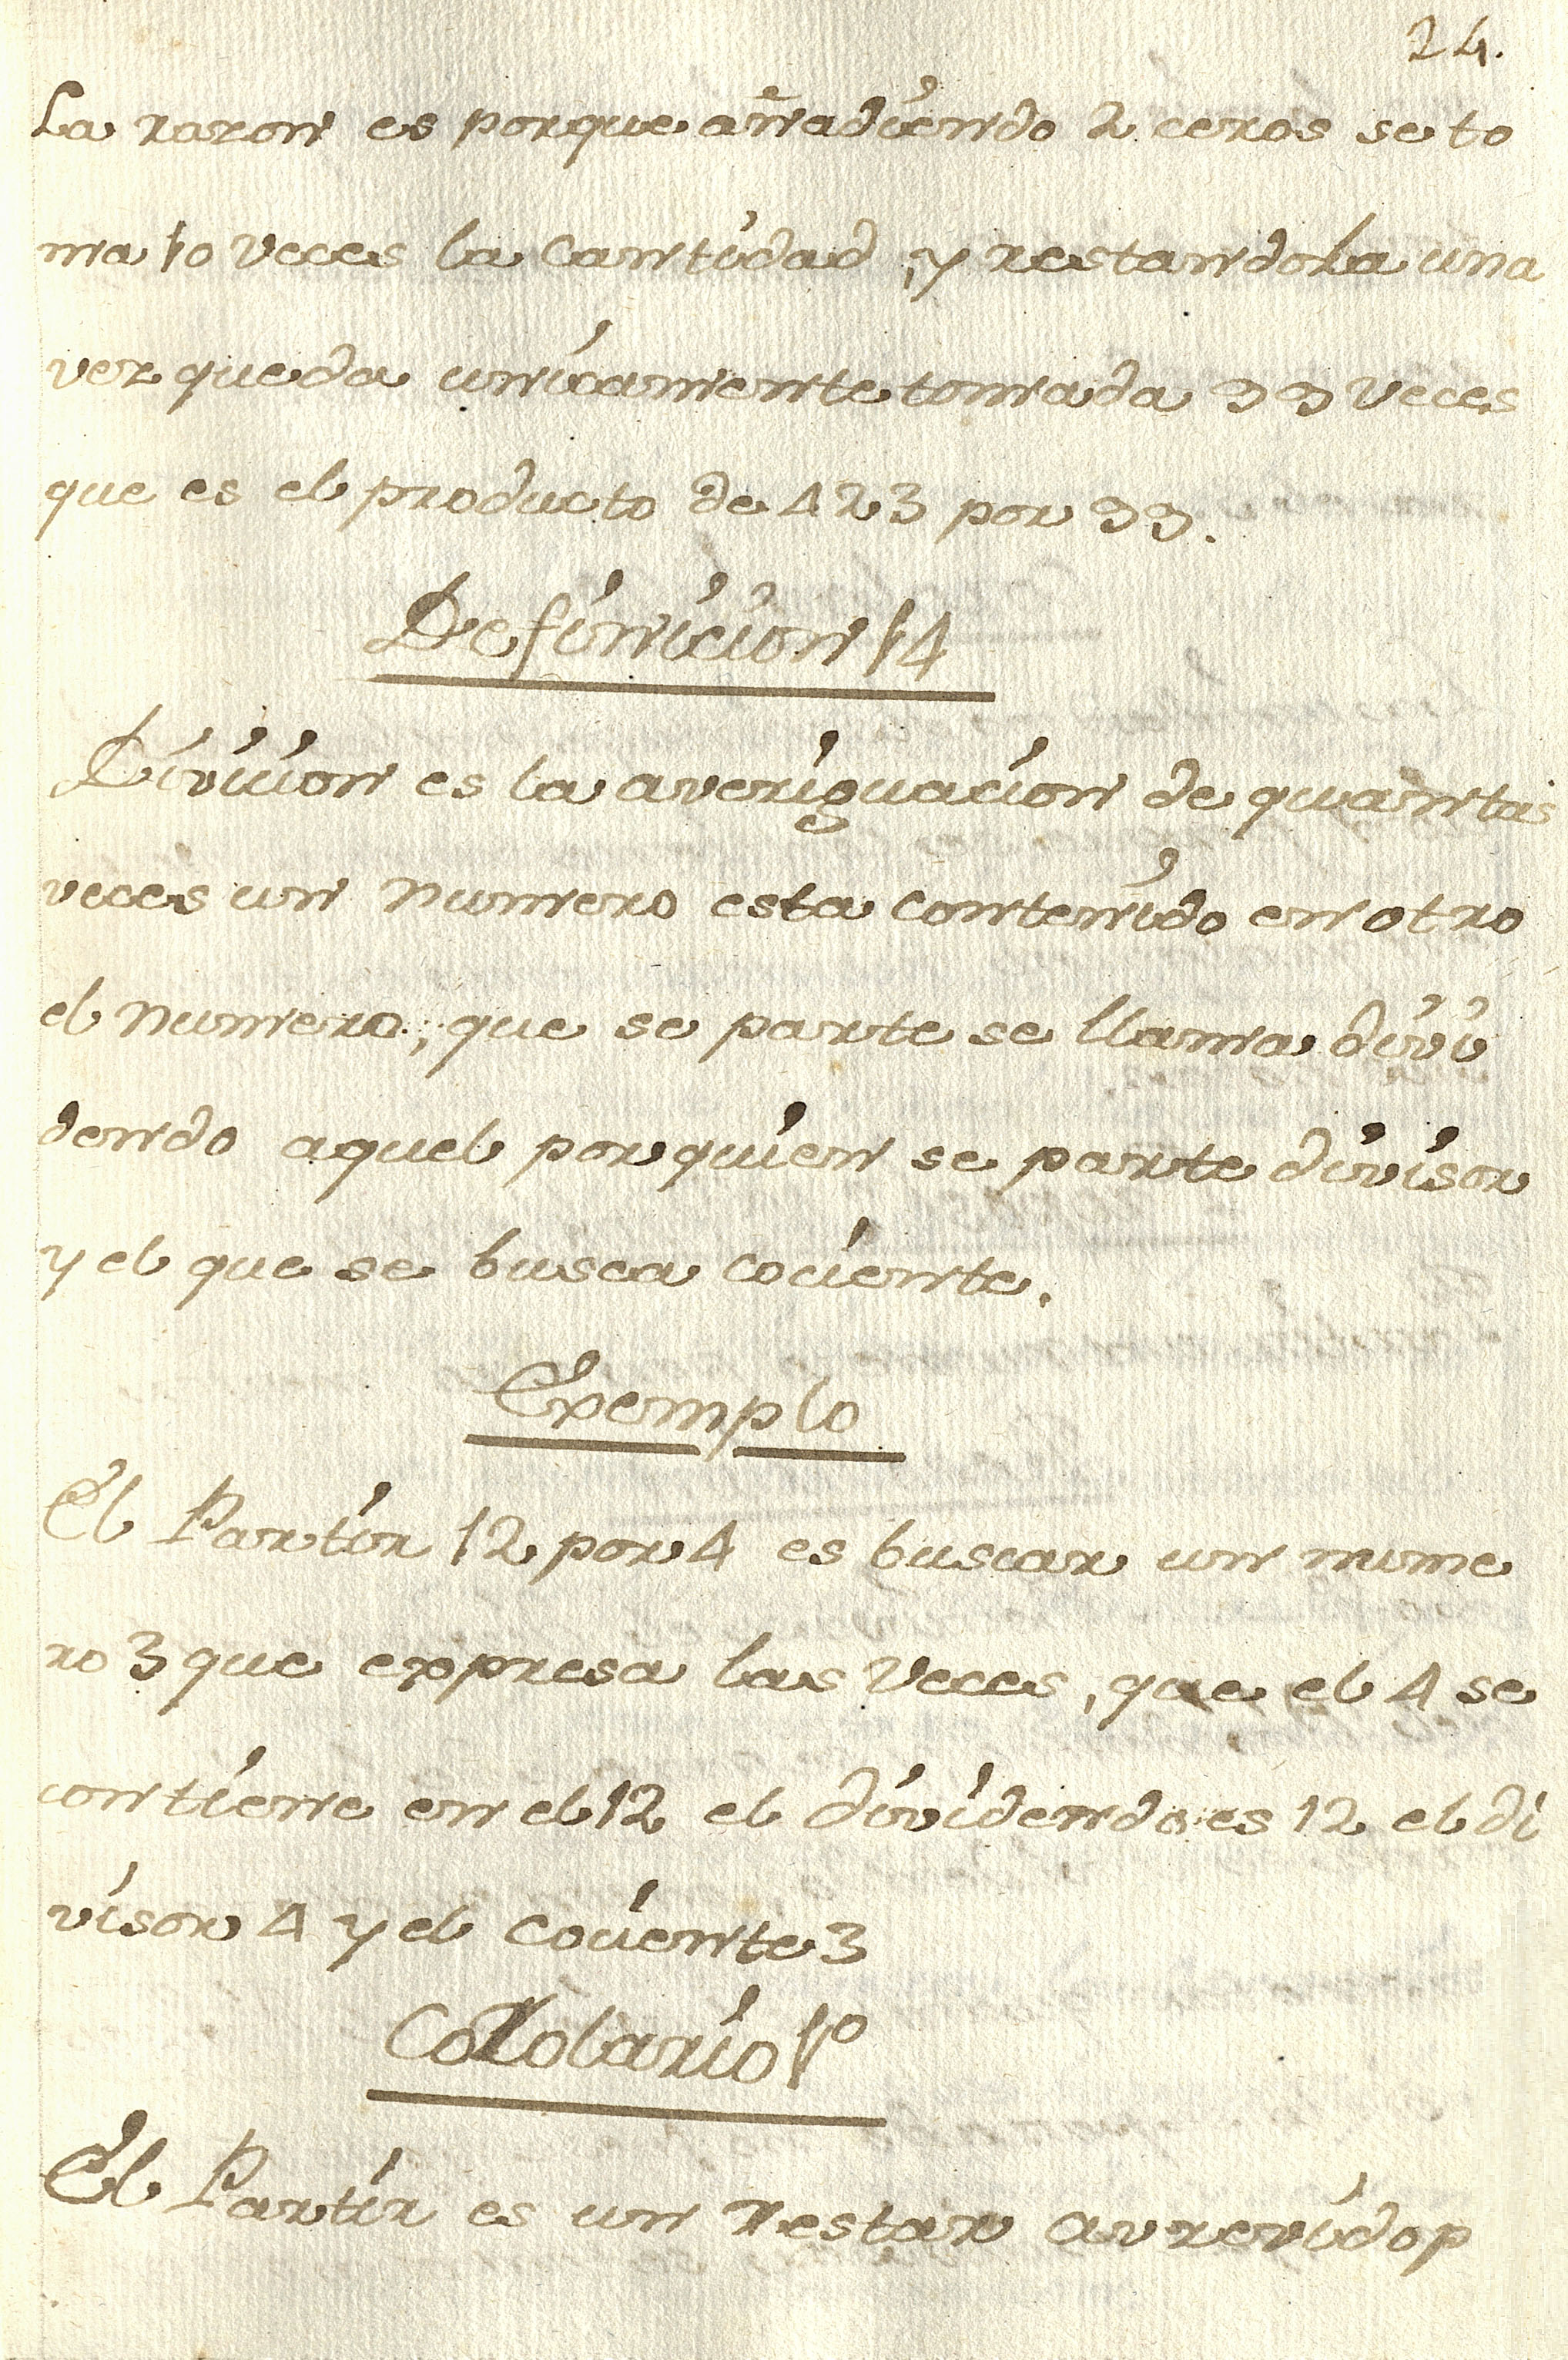 24.
La razon es porque añadiendo 2 ceros se to
ma 10 veces la Cantidad, y restandola una
vez queda unicamente tomada 99 veces
que es el producto de 423 por 99.
Definicion 14
Divicion es la averiguacion de quantas
veces un numero esta contenido en otro
el numero, que se parte se llama divi
dendo aquel por quien se parte divisor
y el que se busca cociente.
Exemplo
El Partir 12 por 4 es buscar un nume
ro 3 que expresa las veces, que el 4 se
contiene en el 12 el dividendo es 12 el di
visor 4 y el cociente 3
Corolario 1º
El Partir es un restar avrevido p